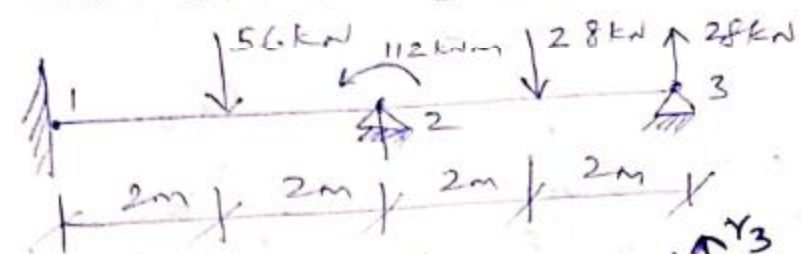 56kN 112kNm 28kN 28kN
1 2 3
2m 2m 2m 2m
r3